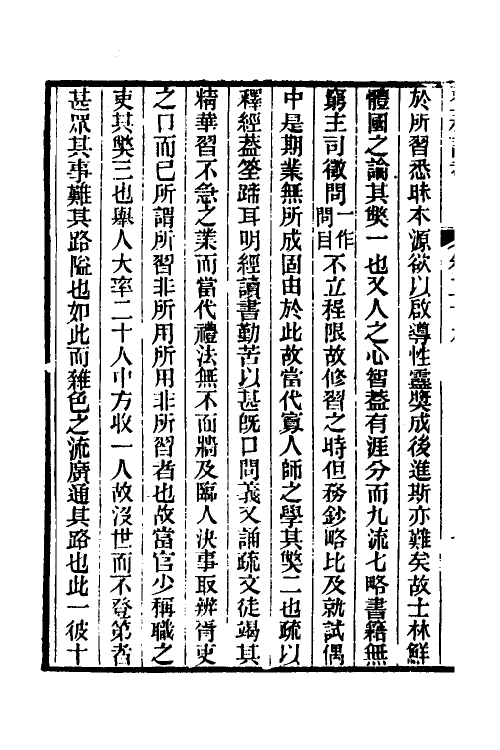 於所習悉昧本源欲以啟導性靈獎成後進斯亦難矣故士林鮮
體國之論其獘一也又人之心智蓋有涯分而九流七略書籍無
窮主司徵問一作問目不立程限故修習之時但務鈔略比及就試偶
中是期業無所成固由於此故當代寡人師之學其獘二也疏以
釋經蓋筌蹄耳明經讀書勤苦以甚旣口問義又誦疏文徒竭其
精華習不急之業而當代禮法無不面牆及臨人決事取辨胥吏
之口而已所謂所習非所用所用非所習者也故當官少稱職之
吏其獘三也舉人大率二十人中方收一人故沒世而不登第者
甚眾其事難其路隘也如此而雜色之流廣通其路也此一彼十